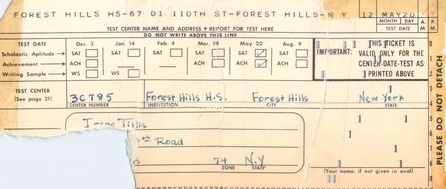 FOREST HILLS HS-67 01 110TH ST-FOREST HILLS-N Y 12 MAY20
MONTH DAY A.M. P.M.
TEST CENTER NAME AND ADDRESS • REPORT FOR TEST HERE
DO NOT WRITE ABOVE THIS LINE
TEST DATE Dec. 3 Jan. 14 Feb. 4 Mar. 18 May 20 Aug. 9
Scholastic Aptitude SAT SAT SAT SAT SAT
Achievement ACH ACH ACH ACH
Writing Sample
IMPORTANT: THIS TICKET IS
VALID ONLY FOR THE
CENTER-DATE-TEST AS
PRINTED ABOVE
TEST CENTER
(See page 31)
3C795 Forest Hills H.S. Forest Hills New York
CENTER NUMBER INSTITUTION CITY STATE
Tillis
th Road
74 N.Y
ZONE STATE
(Your name, if not given in oval)
PLEASE DO NOT DETACH